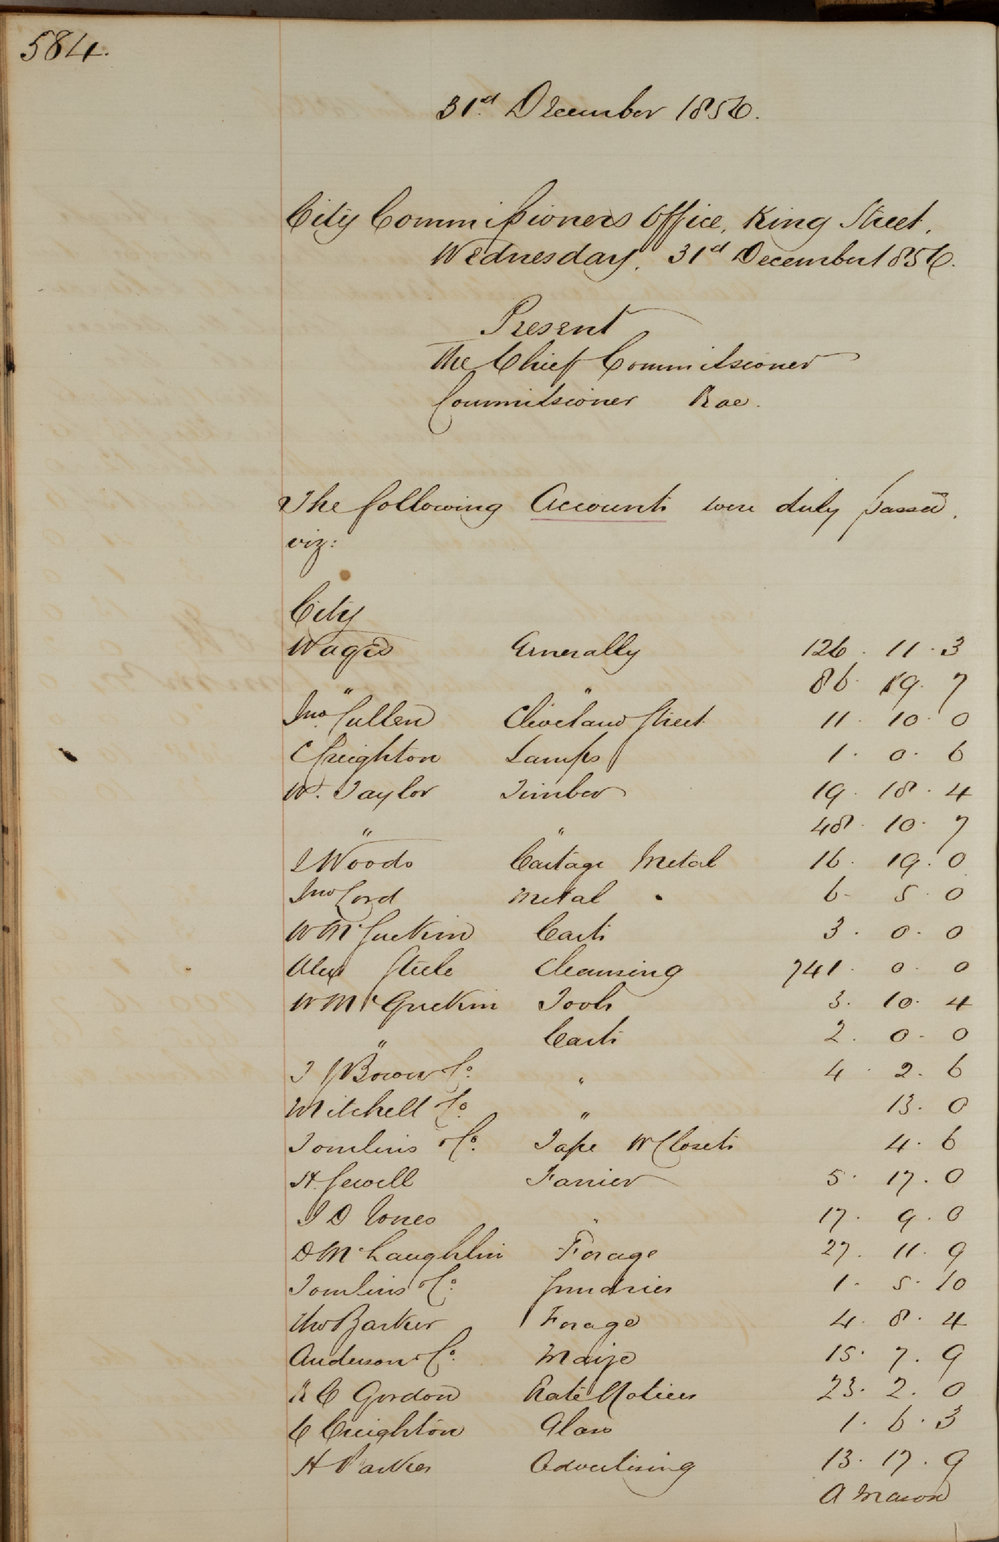 584.
31st December 1856.
City Commissioners Office, King Street.
Wednesday, 31st December 1856.
Present
The Chief Commissioner
Commissioner Rae.
The following Accounts were duly passed.
viz:
City
Wages Generally 126. 11. 3
" " 86. 19. 7
Jno Cullen Cleveland Street 11. 10. 0
C Creighton Lamps 1. 0. 6
W. Taylor Timber 19. 18. 4
" " 48. 10. 7
Woods Cartage Metal 16. 19. 0
Jno Cord Metal 6. 5. 0
W McGuckin Carts 3. 0. 0
Alex Steele Cleansing 741. 0. 0
W McGuckin Tools 3. 10. 4
" Carts 2. 0. 0
Brown Co. " 4. 2. 6
Mitchell & Co. " 13. 0
Tomlins & Co. Tape W Closets 4. 6
H. Sewell Farrier 5. 17. 0
J D Jones " 17. 9. 0
D McLaughlin Forage 27. 11. 9
Tomlins & Co. Sundries 1. 5. 10
Thos Barker Forage 4. 8. 4
Anderson & Co. Maize 15. 7. 9
R C Gordon Rate Notices 23. 2. 0
C Creighton Glass 1. 6. 3
H Parkes Advertising 13. 17. 9
A Mason